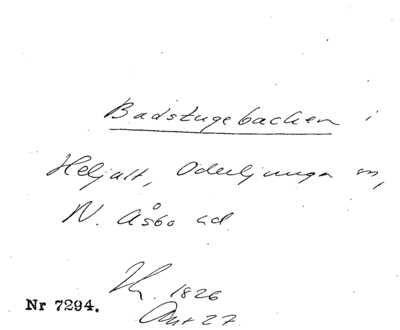 Badstugebacken i
Heljalt, Oderljunga sn,
N. Åsbo hd.
1826
Akt 27
Nr 7294.